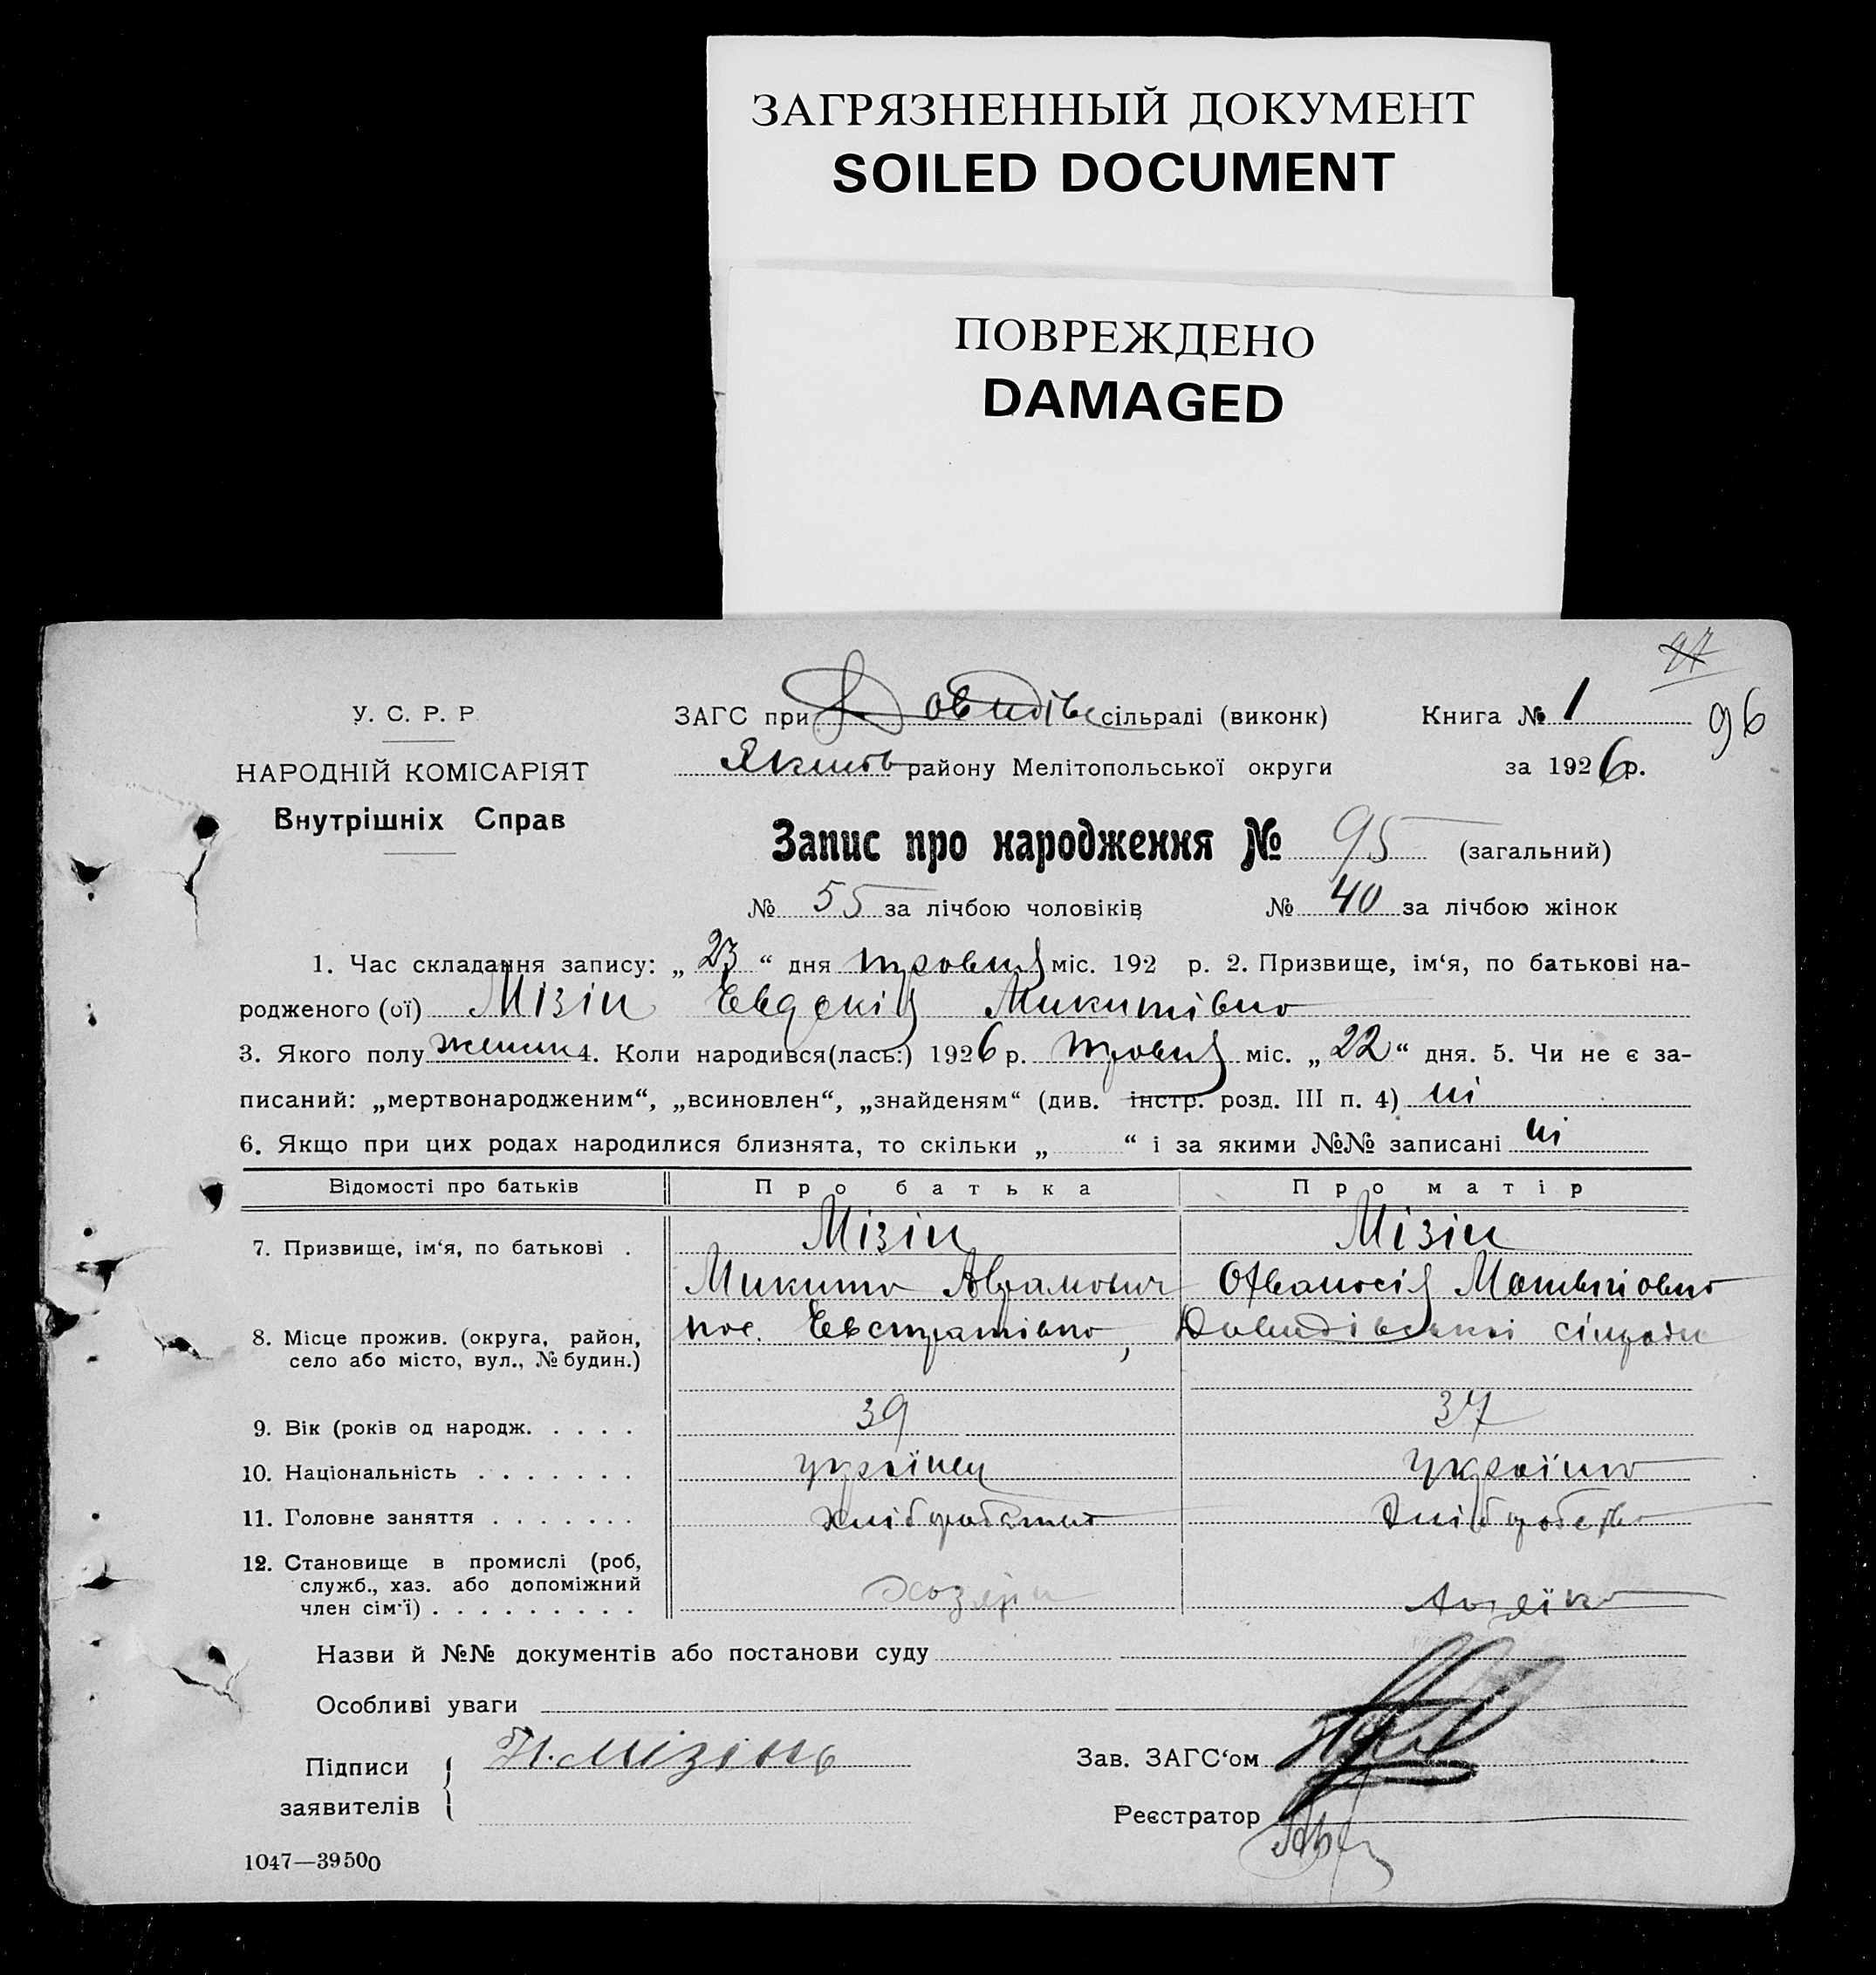 ЗАГРЯЗНЕННЫЙ ДОКУМЕНТ
SOILED DOCUMENT
ПОВРЕЖДЕНО
DAMAGED
97
96
У. С. Р. Р
НАРОДНІЙ КОМІСАРІЯТ
Внутрішніх Справ
ЗАГС при Довидівс сільраді (виконк) Книга № 1
Якимов району Мелітопольської округи за 1926 р.
Запис про народження № 95 (загальний)
№ 55 за лічбою чоловіків № 40 за лічбою жінок
1. Час складання запису: „ 23 “ дня травня міс. 192 р. 2. Призвище, ім‘я, по батькові на-
родженого (ої) Мізін Евдокія Микитівна
3. Якого полу женск 4. Коли народився(лась:) 1926 р. травня міс. „ 22 “ дня. 5. Чи не є за-
писаний: „мертвонародженим“, „всиновлен“, „знайденям“ (див. інстр. розд. III п. 4) ні
6. Якщо при цих родах народилися близнята, то скільки „ “ і за якими №№ записані ні
Відомості про батьків Про батька Про матір
7. Призвище, ім‘я, по батькові . Мізін Мізін
Микита Аврамович Афанасія Матвієвна
8. Місце прожив. (округа, район, пос. Евстратівна, Давидівської сільради
село або місто, вул., № будин.)
9. Вік (років од народж. . . . . 39 37
10. Національність . . . . . . . українец україна
11. Головне заняття . . . . . . . хлібробство
12. Становище в промислі (роб,
служб., хаз. або допоміжний
член сім‘ї) . . . . . . . . . хозяін
Назви й №№ документів або постанови суду
Особливі уваги
Підписи Н. Мізінъ Зав. ЗАГС‘ом
заявителів Реєстратор
1047—39500